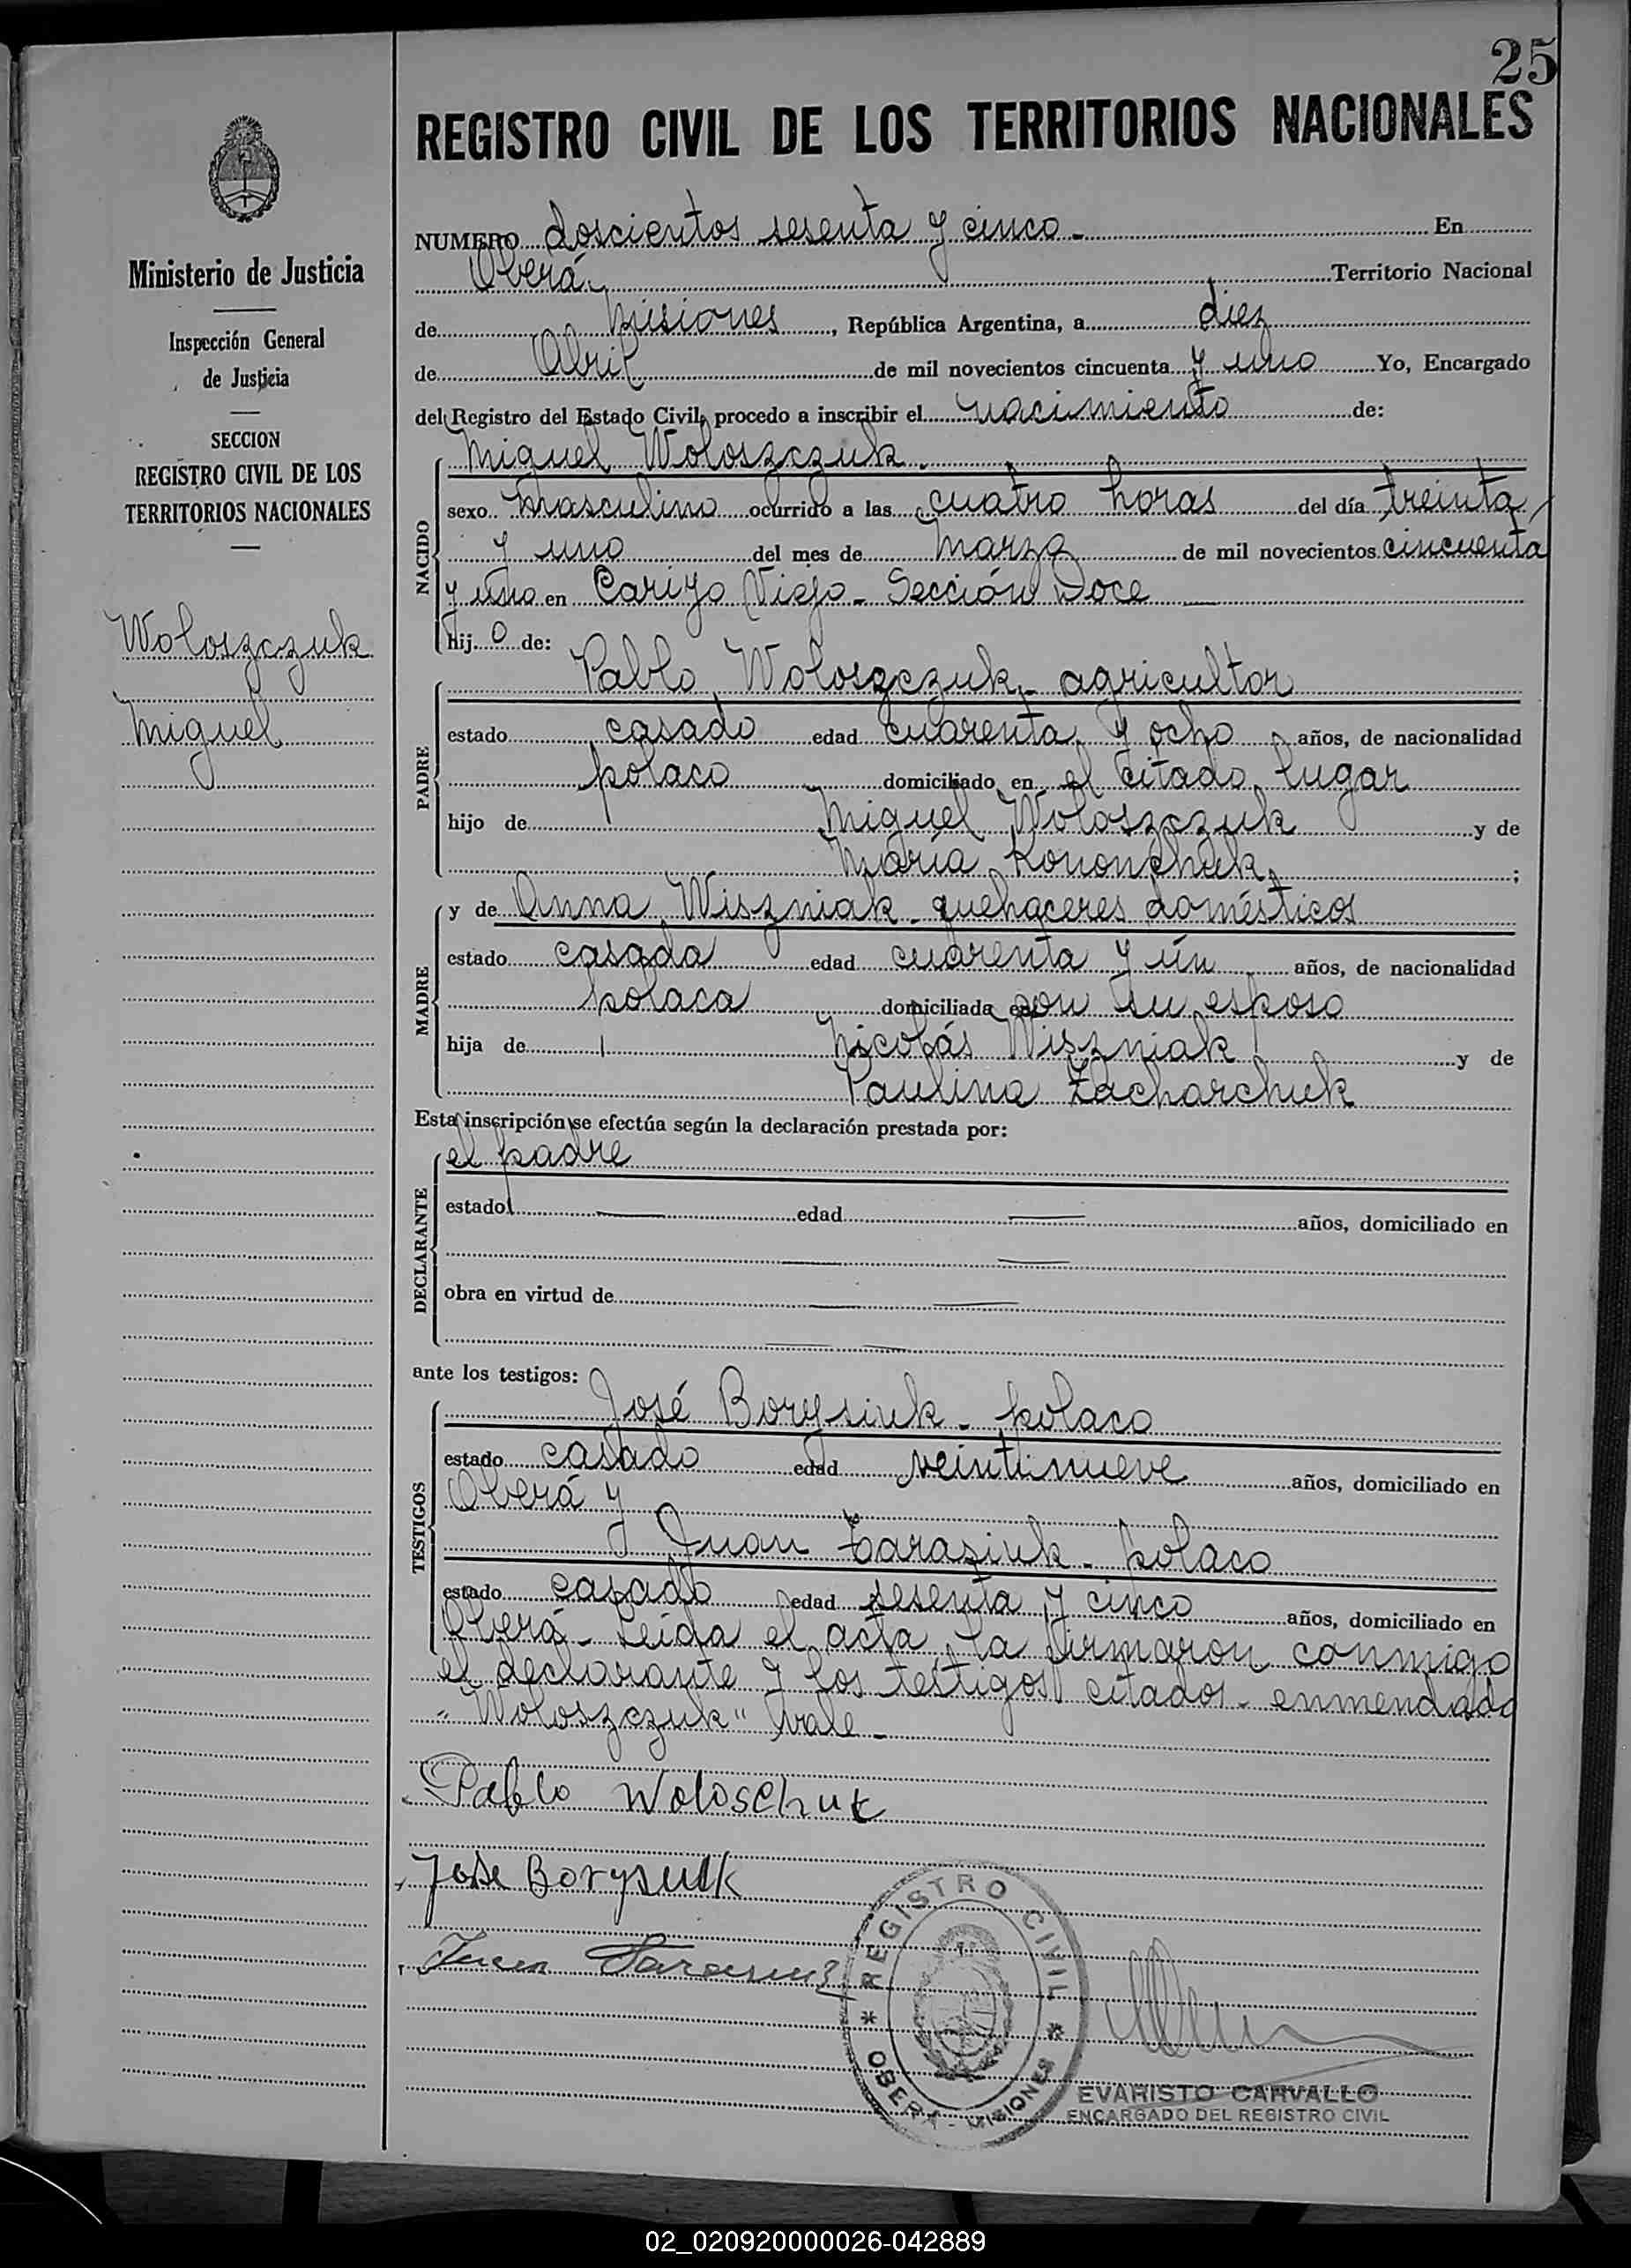 25
REGISTRO CIVIL DE LOS TERRITORIOS NACIONALES
Ministerio de Justicia
Inspección General
de Justicia
SECCION
REGISTRO CIVIL DE LOS
TERRITORIOS NACIONALES
Woloszczuk
Miguel
NUMERO doscientos sesenta y cinco - En
Oberá, Territorio Nacional
de Misiones, República Argentina, a diez
de Abril de mil novecientos cincuenta y uno Yo, Encargado
del Registro del Estado Civil, procedo a inscribir el nacimiento de:
NACIDO
Miguel Woloszczuk.
sexo masculino ocurrido a las cuatro horas del día treinta
y uno del mes de marzo de mil novecientos cincuenta
y uno en Cariyo Viejo - Sección Doce
hij o de:
PADRE
Pablo Woloszczuk - agricultor
estado casado edad cuarenta y ocho años, de nacionalidad
polaco domiciliado en el citado lugar
hijo de Miguel Woloszczuk y de
María Kononchuk ;
MADRE
y de Anna Wiszniak - quehaceres domésticos
estado casada edad cuarenta y ún años, de nacionalidad
polaca domiciliada con su esposo
hija de Nicolás Wiszniak y de
Paulina Zacharchuk
Esta inscripción se efectúa según la declaración prestada por:
DECLARANTE
el padre
estado — edad — años, domiciliado en
— —
obra en virtud de — —
— —
ante los testigos:
TESTIGOS
José Borysiuk - polaco
estado casado edad veintinueve años, domiciliado en
Oberá y
Juan Tarasiuk - polaco
estado casado edad sesenta y cinco años, domiciliado en
Oberá - Leída el acta, la firmaron conmigo
el declarante y los testigos citados - enmendado
"Woloszczuk" vale -
Pablo Woloschuk
Jose Borysiuk
Juan Tarasiuk
REGISTRO CIVIL
* OBERÁ - MISIONES *
EVARISTO CARVALLO
ENCARGADO DEL REGISTRO CIVIL
02_020920000026-042889